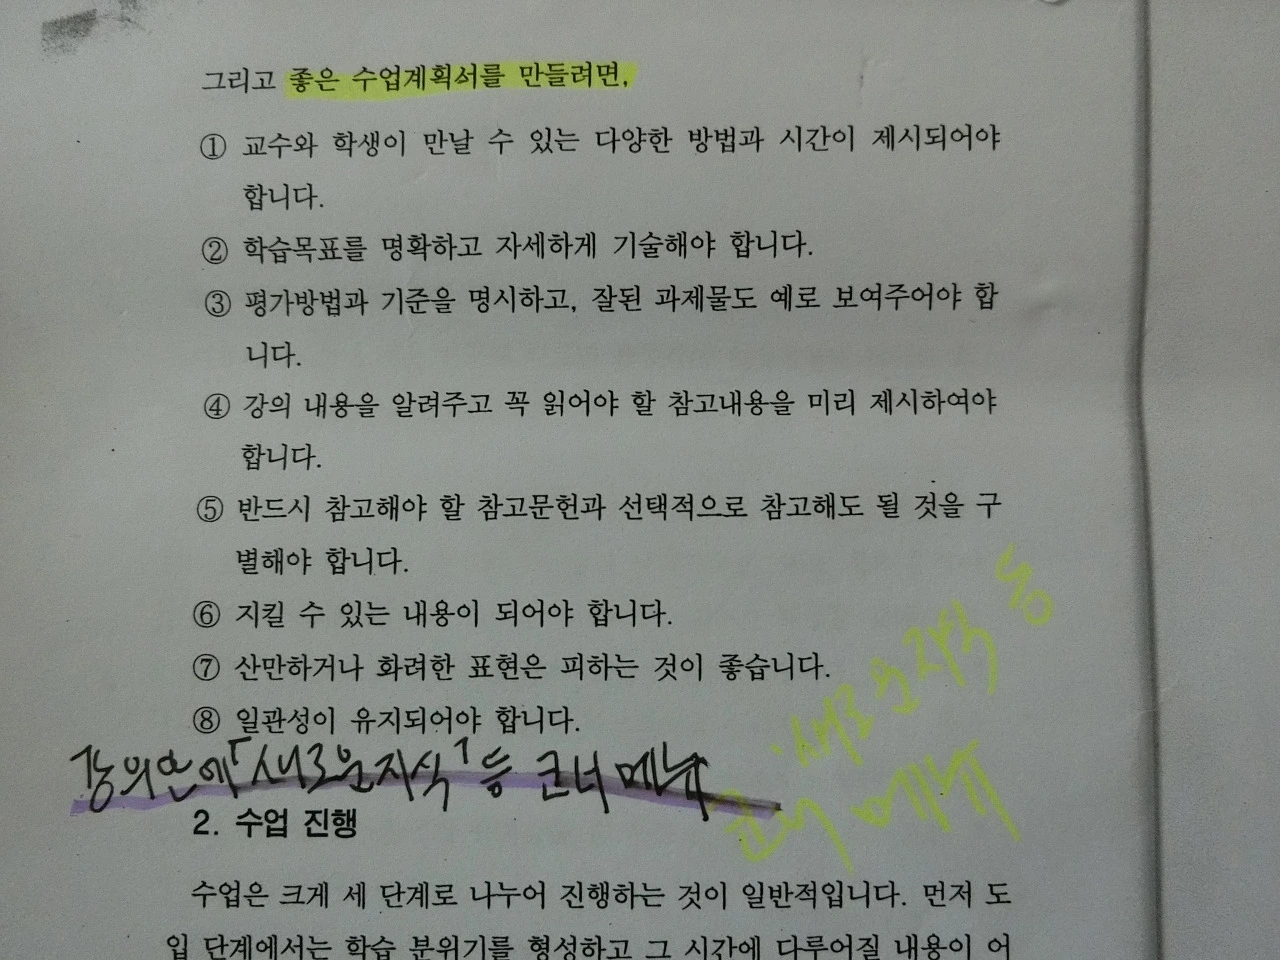 그리고 좋은 수업계획서를 만들려면,
① 교수와 학생이 만날 수 있는 다양한 방법과 시간이 제시되어야
합니다.
② 학습목표를 명확하고 자세하게 기술해야 합니다.
③ 평가방법과 기준을 명시하고, 잘된 과제물도 예로 보여주어야 합
니다.
④ 강의 내용을 알려주고 꼭 읽어야 할 참고내용을 미리 제시하여야
합니다.
⑤ 반드시 참고해야 할 참고문헌과 선택적으로 참고해도 될 것을 구
별해야 합니다.
⑥ 지킬 수 있는 내용이 되어야 합니다.
⑦ 산만하거나 화려한 표현은 피하는 것이 좋습니다.
⑧ 일관성이 유지되어야 합니다.
새로운지식 등
코너 메뉴
강의안에「새로운지식」등 코너 메뉴
2. 수업 진행
수업은 크게 세 단계로 나누어 진행하는 것이 일반적입니다. 먼저 도
입 단계에서는 학습 분위기를 형성하고 그 시간에 다루어질 내용이 어